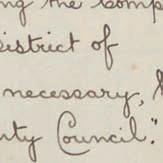 ing the comp
district of
necessary,
nty Council."